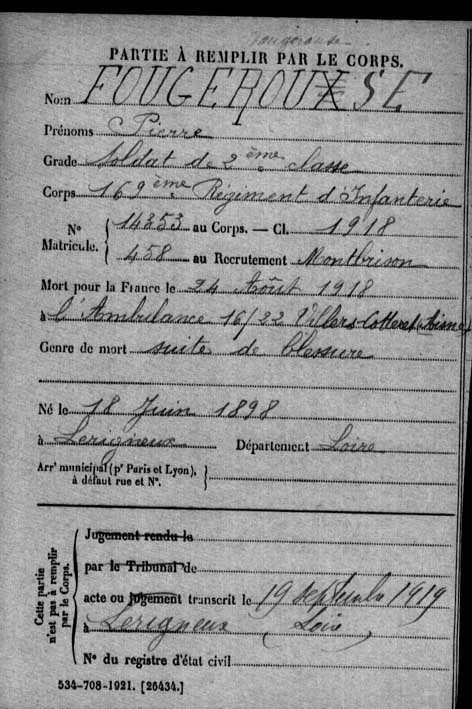 Fougerouse
PARTIE À REMPLIR PAR LE CORPS.
Nom FOUGEROUSE
Prénoms Pierre
Grade Soldat de 2ème classe
Corps 169ème Régiment d'Infanterie
N° Matricule. { 14353 au Corps. — Cl. 1918
458 au Recrutement Montbrison
Mort pour la France le 24 Août 1918
à l'Ambulance 16/22 Villers-Cotteret Aisne
Genre de mort suite de blessure
Né le 18 Juin 1898
à Lerigneux Département Loire
Arrt municipal (pr Paris et Lyon), }
à défaut rue et N°.
Cette partie n'est pas à remplir par le Corps.
Jugement rendu le
par le Tribunal de
acte ou jugement transcrit le 19 septembre 1919
à Lerigneux (Loire)
N° du registre d'état civil
534-708-1921. [26434.]